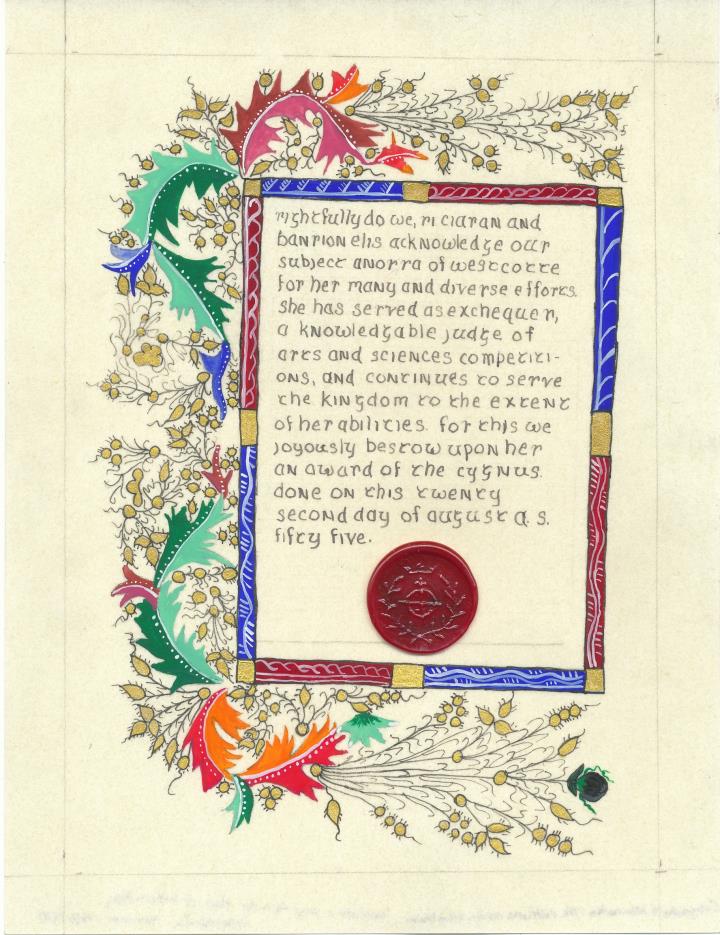 rightfully do we, ri ciaran and
banrion elis acknowledge our
subject anorra of westcotte
for her many and diverse efforts.
she has served as exchequer,
a knowledgable judge of
arts and sciences competiti-
ons, and continues to serve
the kingdom to the extent
of her abilities. for this we
joyously bestow upon her
an award of the cygnus.
done on this twenty
second day of august a. s.
fifty five.